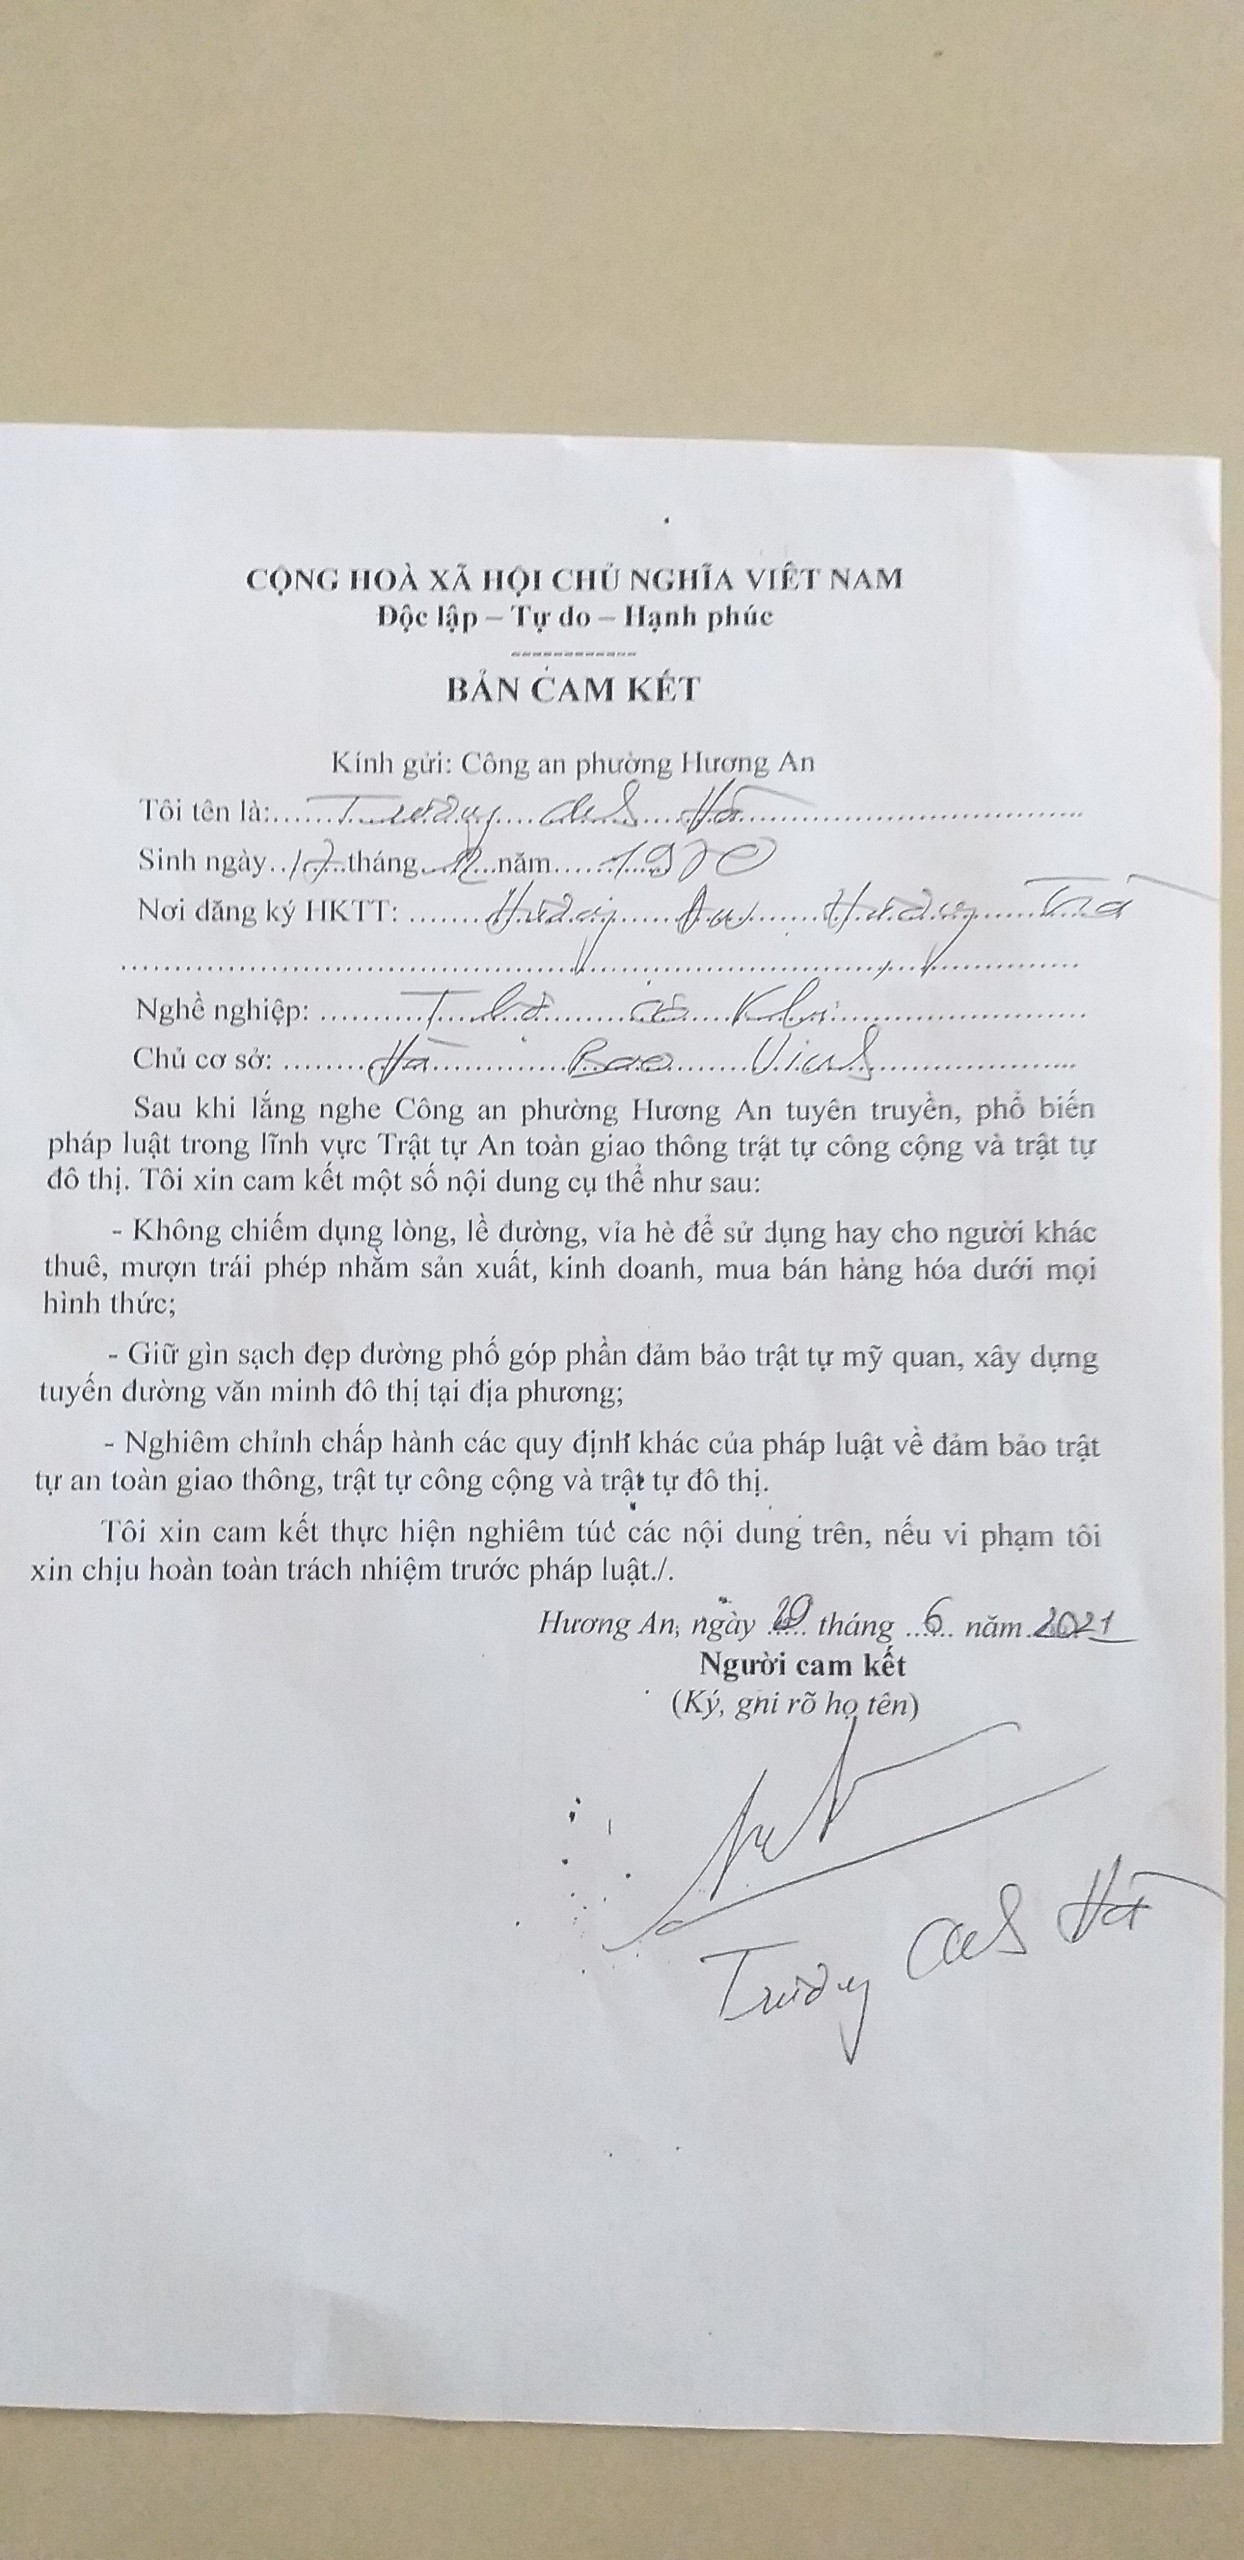 CỘNG HOÀ XÃ HỘI CHỦ NGHĨA VIỆT NAM
Độc lập – Tự do – Hạnh phúc
------------
BẢN CAM KẾT
Kính gửi: Công an phường Hương An
Tôi tên là: Trương Hà
Sinh ngày 17 tháng 12 năm 1970
Nơi đăng ký HKTT: Hương An Hương Trà
Nghề nghiệp: Thợ cơ khí
Chủ cơ sở: Hà Bao Vinh
Sau khi lắng nghe Công an phường Hương An tuyên truyền, phổ biến
pháp luật trong lĩnh vực Trật tự An toàn giao thông trật tự công cộng và trật tự
đô thị. Tôi xin cam kết một số nội dung cụ thể như sau:
- Không chiếm dụng lòng, lề đường, vỉa hè để sử dụng hay cho người khác
thuê, mượn trái phép nhằm sản xuất, kinh doanh, mua bán hàng hóa dưới mọi
hình thức;
- Giữ gìn sạch đẹp đường phố góp phần đảm bảo trật tự mỹ quan, xây dựng
tuyến đường văn minh đô thị tại địa phương;
- Nghiêm chỉnh chấp hành các quy định khác của pháp luật về đảm bảo trật
tự an toàn giao thông, trật tự công cộng và trật tự đô thị.
Tôi xin cam kết thực hiện nghiêm túc các nội dung trên, nếu vi phạm tôi
xin chịu hoàn toàn trách nhiệm trước pháp luật./.
Hương An, ngày 20 tháng 6 năm 2021
Người cam kết
(Ký, ghi rõ họ tên)
Trương Hà